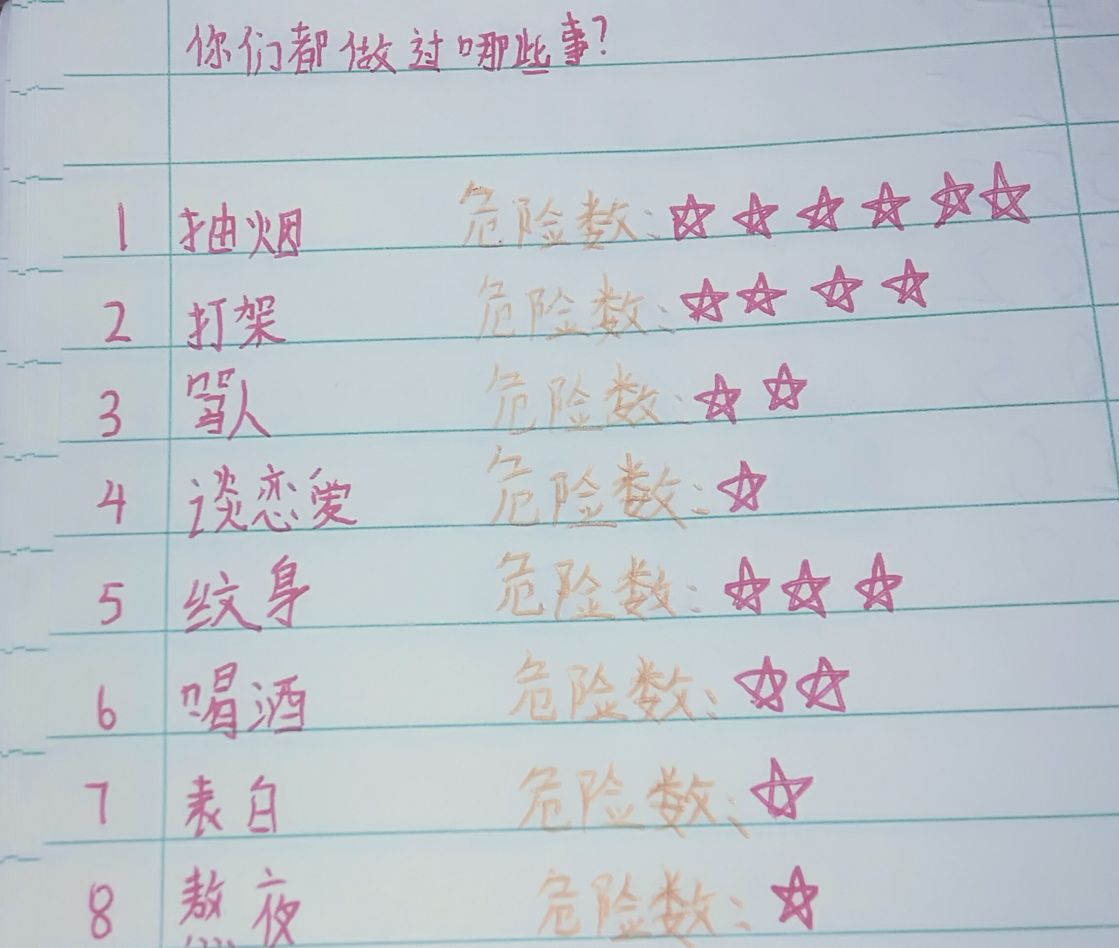 你们都做过哪些事?
1 抽烟 危险数:☆☆☆☆☆☆
2 打架 危险数:☆☆☆☆
3 骂人 危险数:☆☆
4 谈恋爱 危险数:☆
5 纹身 危险数:☆☆☆
6 喝酒 危险数:☆☆
7 表白 危险数:☆
8 熬夜 危险数:☆